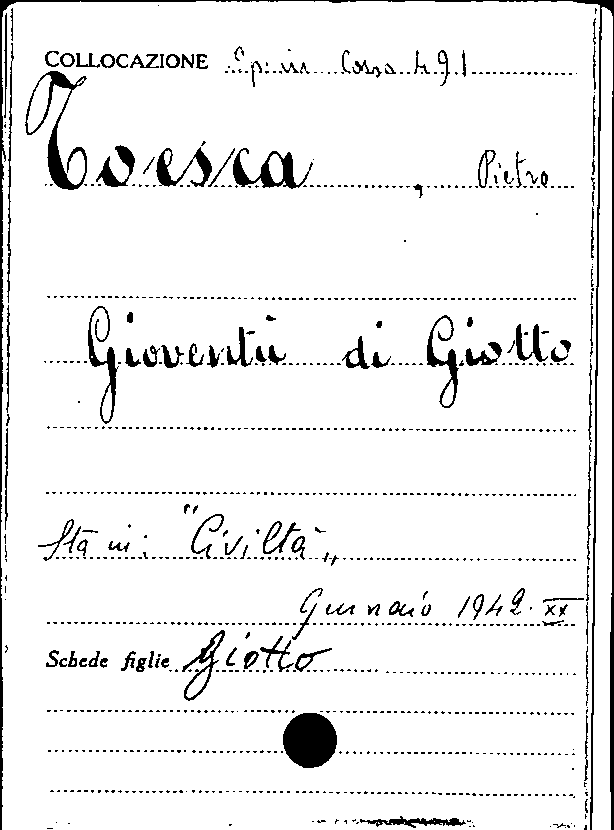 COLLOCAZIONE Op. in Corso 491
Toesca, Pietro
Gioventù di Giotto
Sta in: "Civiltà„
Gennaio 1942. XX
Schede figlie Giotto